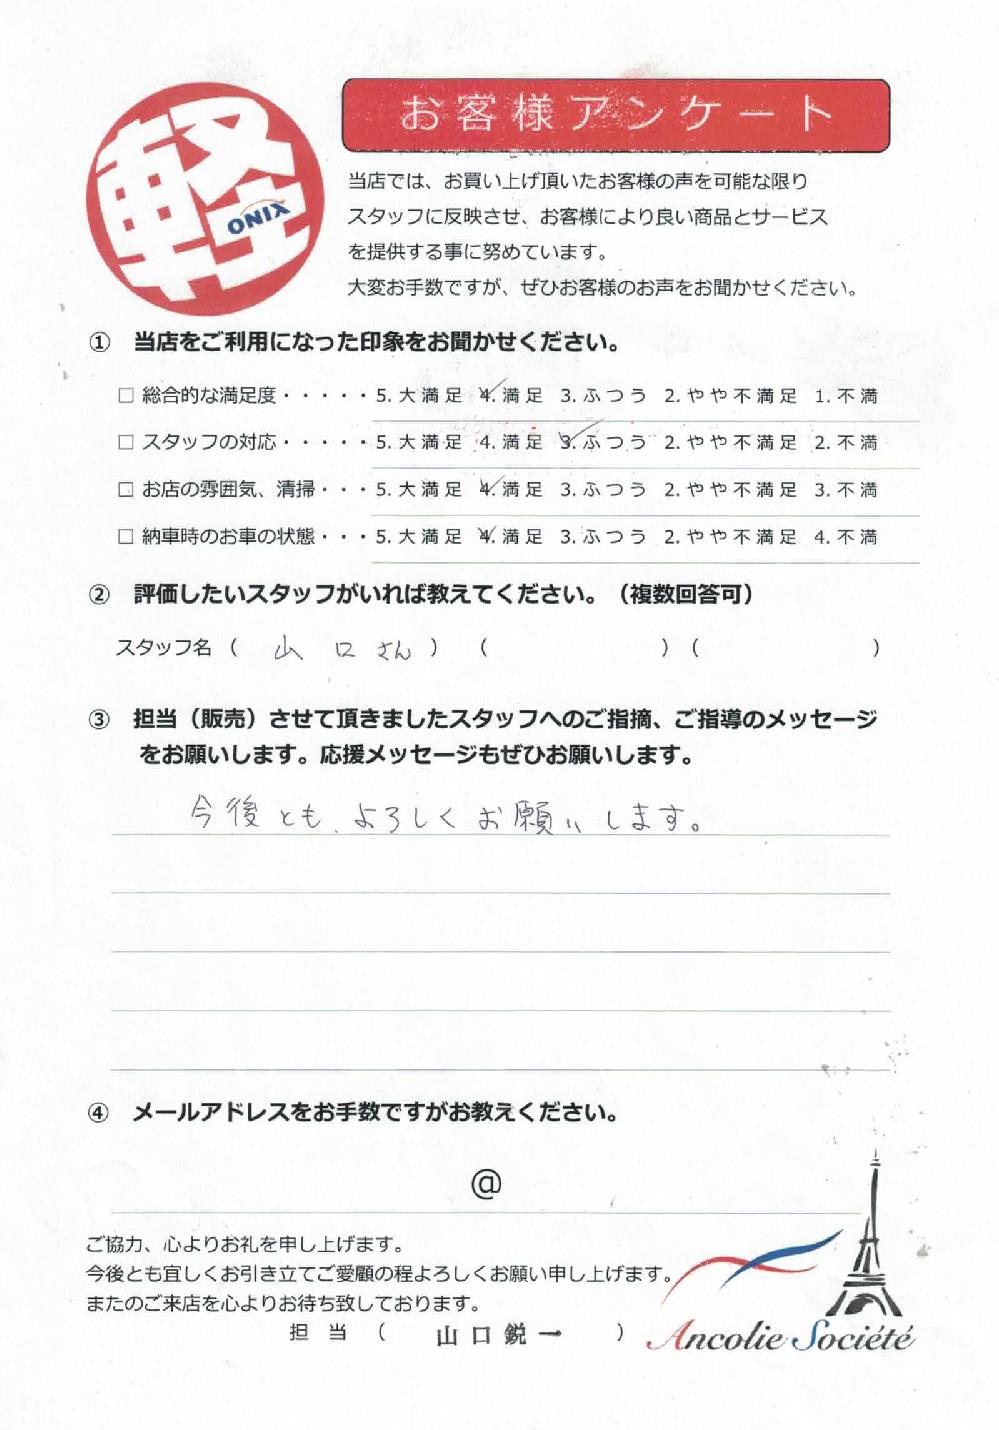 軽
ONIX
お客様アンケート
当店では、お買い上げ頂いたお客様の声を可能な限り
スタッフに反映させ、お客様により良い商品とサービス
を提供する事に努めています。
大変お手数ですが、ぜひお客様のお声をお聞かせください。
① 当店をご利用になった印象をお聞かせください。
□ 総合的な満足度・・・・・5.大満足 4.満足 3.ふつう 2.やや不満足 1.不満
□ スタッフの対応・・・・・5.大満足 4.満足 3.ふつう 2.やや不満足 2.不満
□ お店の雰囲気、清掃・・・5.大満足 4.満足 3.ふつう 2.やや不満足 3.不満
□ 納車時のお車の状態・・・5.大満足 4.満足 3.ふつう 2.やや不満足 4.不満
② 評価したいスタッフがいれば教えてください。（複数回答可）
スタッフ名（ 山口さん ）（ ）（ ）
③ 担当（販売）させて頂きましたスタッフへのご指摘、ご指導のメッセージ
をお願いします。応援メッセージもぜひお願いします。
今後とも、よろしくお願いします。
④ メールアドレスをお手数ですがお教えください。
@
ご協力、心よりお礼を申し上げます。
今後とも宜しくお引き立てご愛顧の程よろしくお願い申し上げます。
またのご来店を心よりお待ち致しております。
担当（ 山口鋭一 ）
Ancolie Société